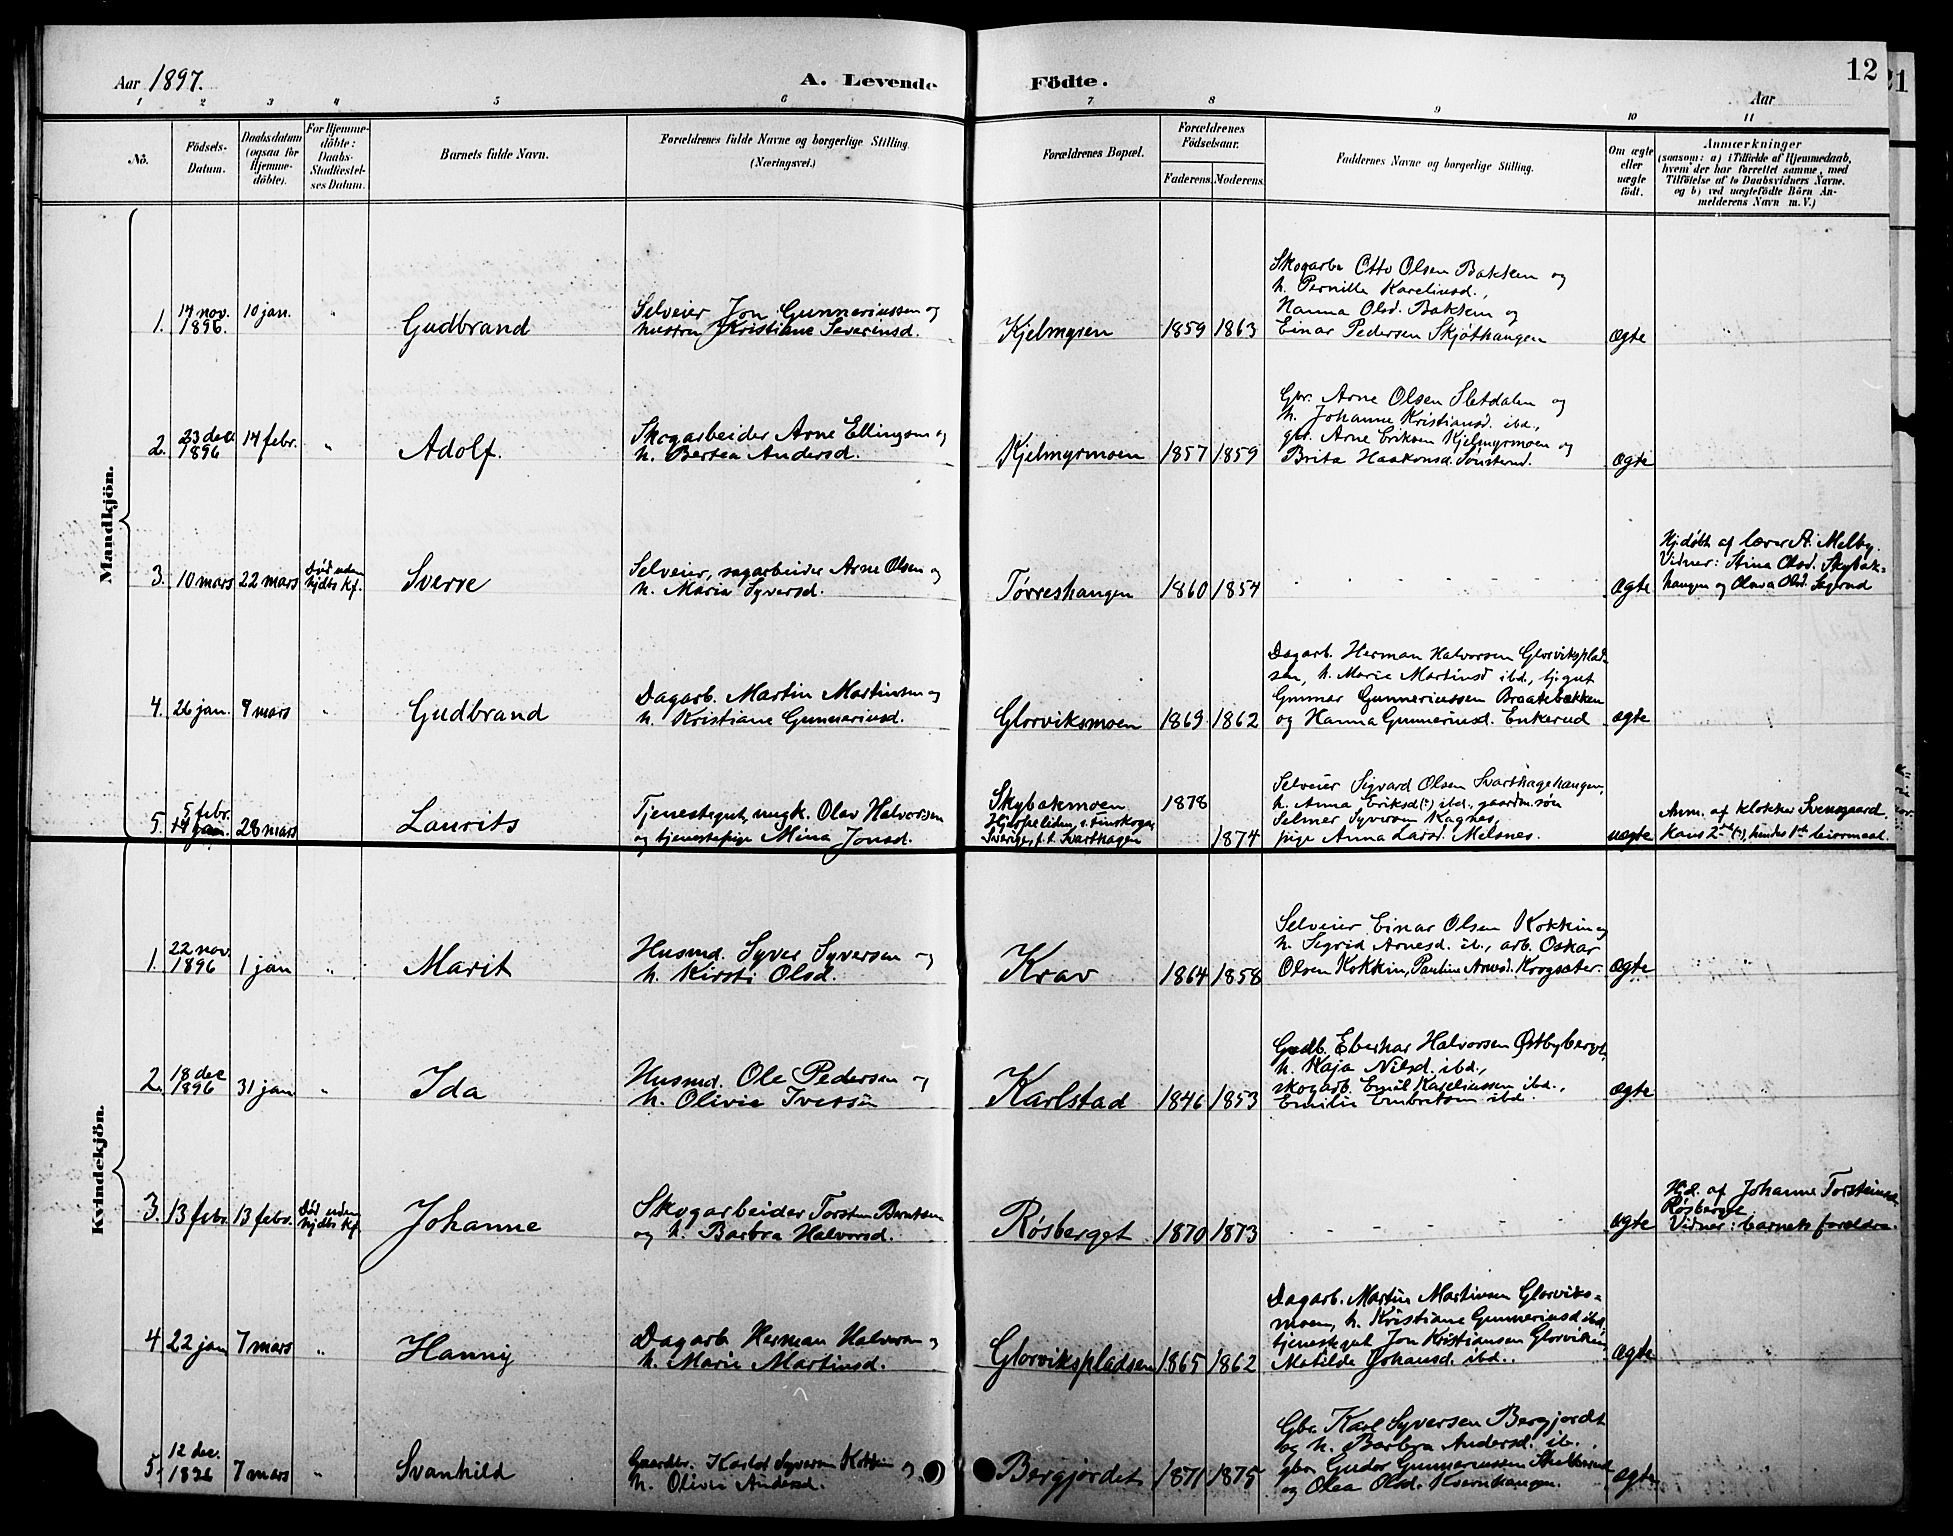 Aar 1897.
A. Levende Födte.
Aar
12
21
1 2 3 4 5 6 7 8 9 10 11
Nö.
Födsels-
Datum.
Daabsdatum
(ogsaa for
Hjemme-
döbte).
For Hjemme-
döbte:
Daabs-
Stadfæstel-
ses Datum.
Barnets fulde Navn.
Forældrenes fulde Navne og borgerlige Stilling.
(Næringsvei.)
Forældrenes Bopæl.
Forældrenes
Födselsaar.
Faderens. Moderens.
Faddernes Navne og borgerlige Stilling.
Om ægte
eller
uægte
födt.
Anmærkninger
(saasom: a) i Tilfælde af Hjemmedaab,
hvem der har forrettet samme, med
Tilföielse af to Daabsvidners Navne.
og b) ved uægtefödte Börn An-
melderens Navn m. V.)
Mandkjön.
1. 17 nov. 1896. 10 jan. " Gudbrand
Selveier Jon Gunneriussen og
hustru Kristiane Severinsd.
Kjelmyren 1859 1863
Skogarb. Otto Olsen Bakken og
h. Pernille Kareliusd.,
Hanna Olsd. Bakken og
Einar Pedersen Skjøthaugen
ægte
2. 23 dec 1896 14 febr. " Adolf.
Skogarbeider Arne Ellingsen og
h. Bertea Andersd.
Kjelmyrmoen 1857 1859
Gbr. Arne Olsen Sletdalen og
h. Johanne Kristiansd. ibd.,
gbr. Arne Eriksen Kjelmyrmoen og
Brita Haakonsd. Sønsterud.
ægte
3. 10 mars 22 mars Död uden hjdbs kf. Sverre
Selveier, sagarbeider Arne Olsen og
h. Maria Syversd.
Tørreshaugen 1860 1854
ægte
Hj.døbt af lærer A. Melby.
Vidner: Stina Olsd. Skybak-
haugen og Olava Olsd. Segerud
4. 26 jan. 9 mars " Gudbrand
Dagarb. Martin Martinsen og
h. Kristiane Gunneriusd.
Glorviksmoen 1869 1862
Dagarb. Herman Halvorsen Glorvikspladsen,
h. Marie Martinsd ibd., tj.gut
Gunnar Gunneriussen Braatebækken
og Hanna Gunneriusd. Enkerud
ægte
5. 5 febr. 14 jan. 28 mars Laurits
Tjenestegut, ungk. Olav Halvorsen
og tjenestepige Mina Jonsd.
Skybakmoen
Sverige, f.t. Svarthagen
1878 1874
Selveier Sigvard Olsen Svarthagehaugen,
h. Anna Eriksd(?) ibd., gaardm.søn
Selmer Syversen Kagnæs,
pige Anna Larsd. Melsnes.
uægte
Anm. af klokker Svensgaard.
Hans 2det (?), hendes 1ste leiermaal.
Kvindekjön.
1. 22 nov. 1896 1 jan " Marit
Husmd. Syver Syversen og
h. Kirsti Olsd.
Krav 1864 1858
Selveier Einar Olsen Kokkin og
h. Sigrid Arnesd. ib., arb. Oskar
Olsen Kokkin, Pauline Arnesd. Krogsæter.
ægte
2. 18 dec 1896 31 jan " Ida
Husmd. Ole Pedersen og
h. Olivie Iversd
Karlstad 1846 1853
Gudb. Eberhar Halvorsen Østbyberget,
h. Kaja Nilsd. ibd.,
skogarb. Emil Kareliussen ibd.,
Emilie Embretsen ibd.
ægte
3. 13 febr. 13 febr. Död uden hjdbs kf. Johanne
Skogarbeider Torsten Berntsen
og h. Barbra Halvorsd.
Røsberget 1870 1873
ægte
Hd. af Johanne Torsteinsd.
Røsberget
Vidner: barnets forældre.
4 22 jan 7 mars " Hanny
Dagarb. Herman Halvorsen og
h. Marie Martinsd.
Glorvikspladsen 1865 1862
Dagarb. Martin Martinsen Glorviks-
moen, h. Kristiane Gunneriusd ibd,
tjenestegut Jon Kristiansen Glorviken,
Matilde Johansd. ibd..
ægte
5. 12 dec. 1896 7 mars " Svanhild
Gaardbr. Karl Syversen Kokkin og
h. Olivie Andersd.
Bergjordet 1871 1875
Gbr. Karl Syversen Bergjordet
og h. Barbra Andersd. ib.
gbr. Gudor Gunneriussen
og Olea Olsd. Kvernhaugen.
ægte